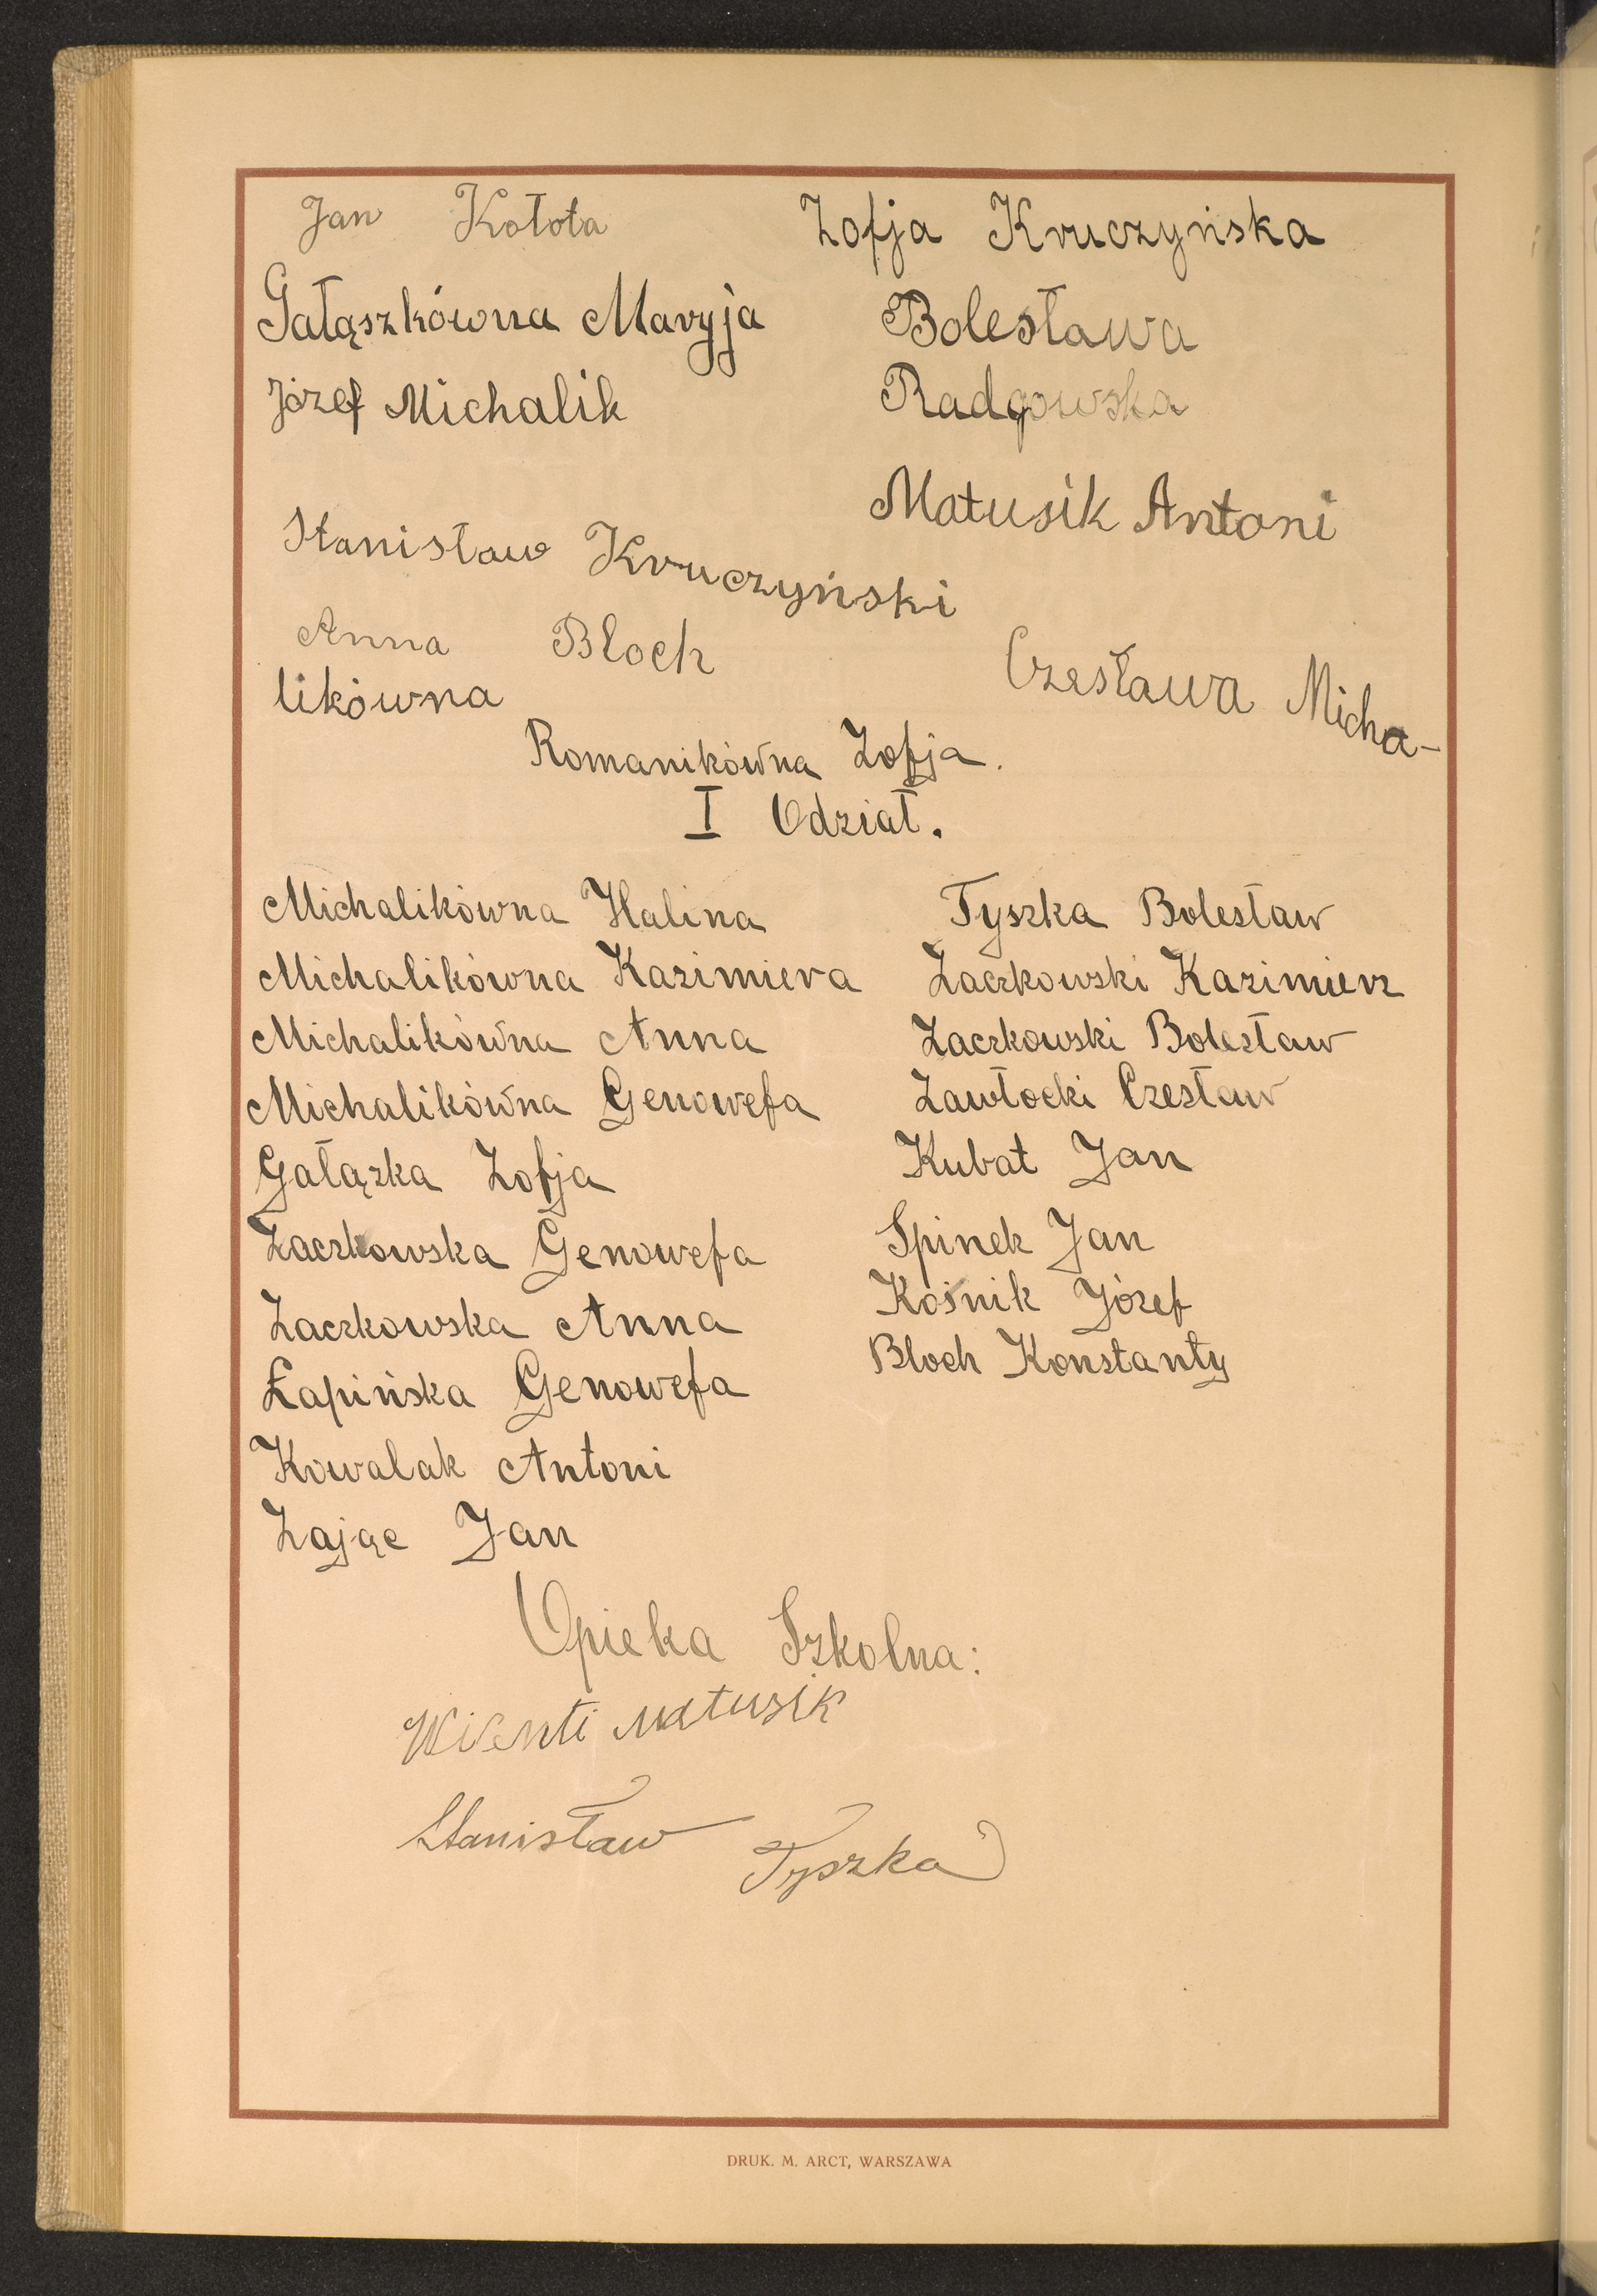 Jan Kołota
Zofja Kruczyńska
Gałąszkówna Maryja
Bolesława
Józef Michalik
Radgowska
Matusik Antoni
Stanisław Kruczyński
Anna Bloch
Czesława Micha-
likówna
Romanikówna Zofja.
I Odział.
Michalikówna Halina
Michalikówna Kazimiera
Michalikówna Anna
Michalikówna Genowefa
Gałązka Zofja
Zaczkowska Genowefa
Zaczkowska Anna
Łapińska Genowefa
Kowalak Antoni
Zając Jan
Tyszka Bolesław
Zaczkowski Kazimierz
Zaczkowski Bolesław
Zawłocki Czesław
Kubat Jan
Spinek Jan
Kośnik Józef
Bloch Konstanty
Opieka Szkolna:
Wisenti Matusik
Stanisław Tyszka
DRUK. M. ARCT, WARSZAWA